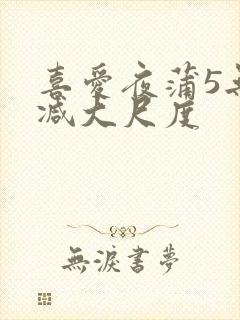 喜愛夜蒲5無
减大尺度
無淚書夢